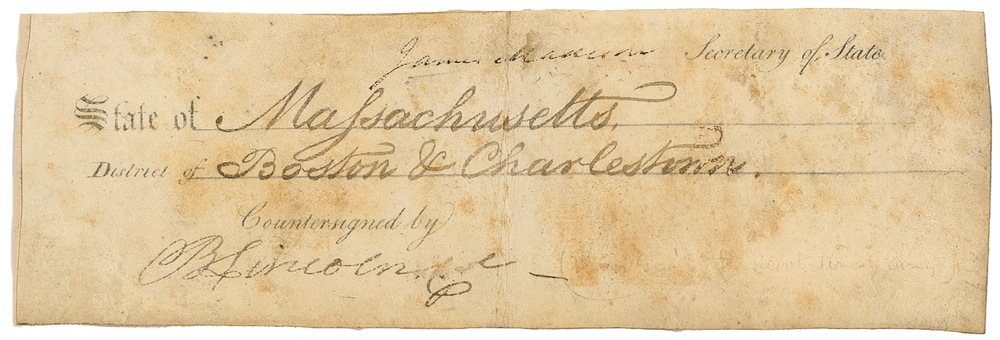 James Madison Secretary of State.
State of Maſsachusetts.
District of Boston & Charlestown.
Countersigned by
B Lincoln